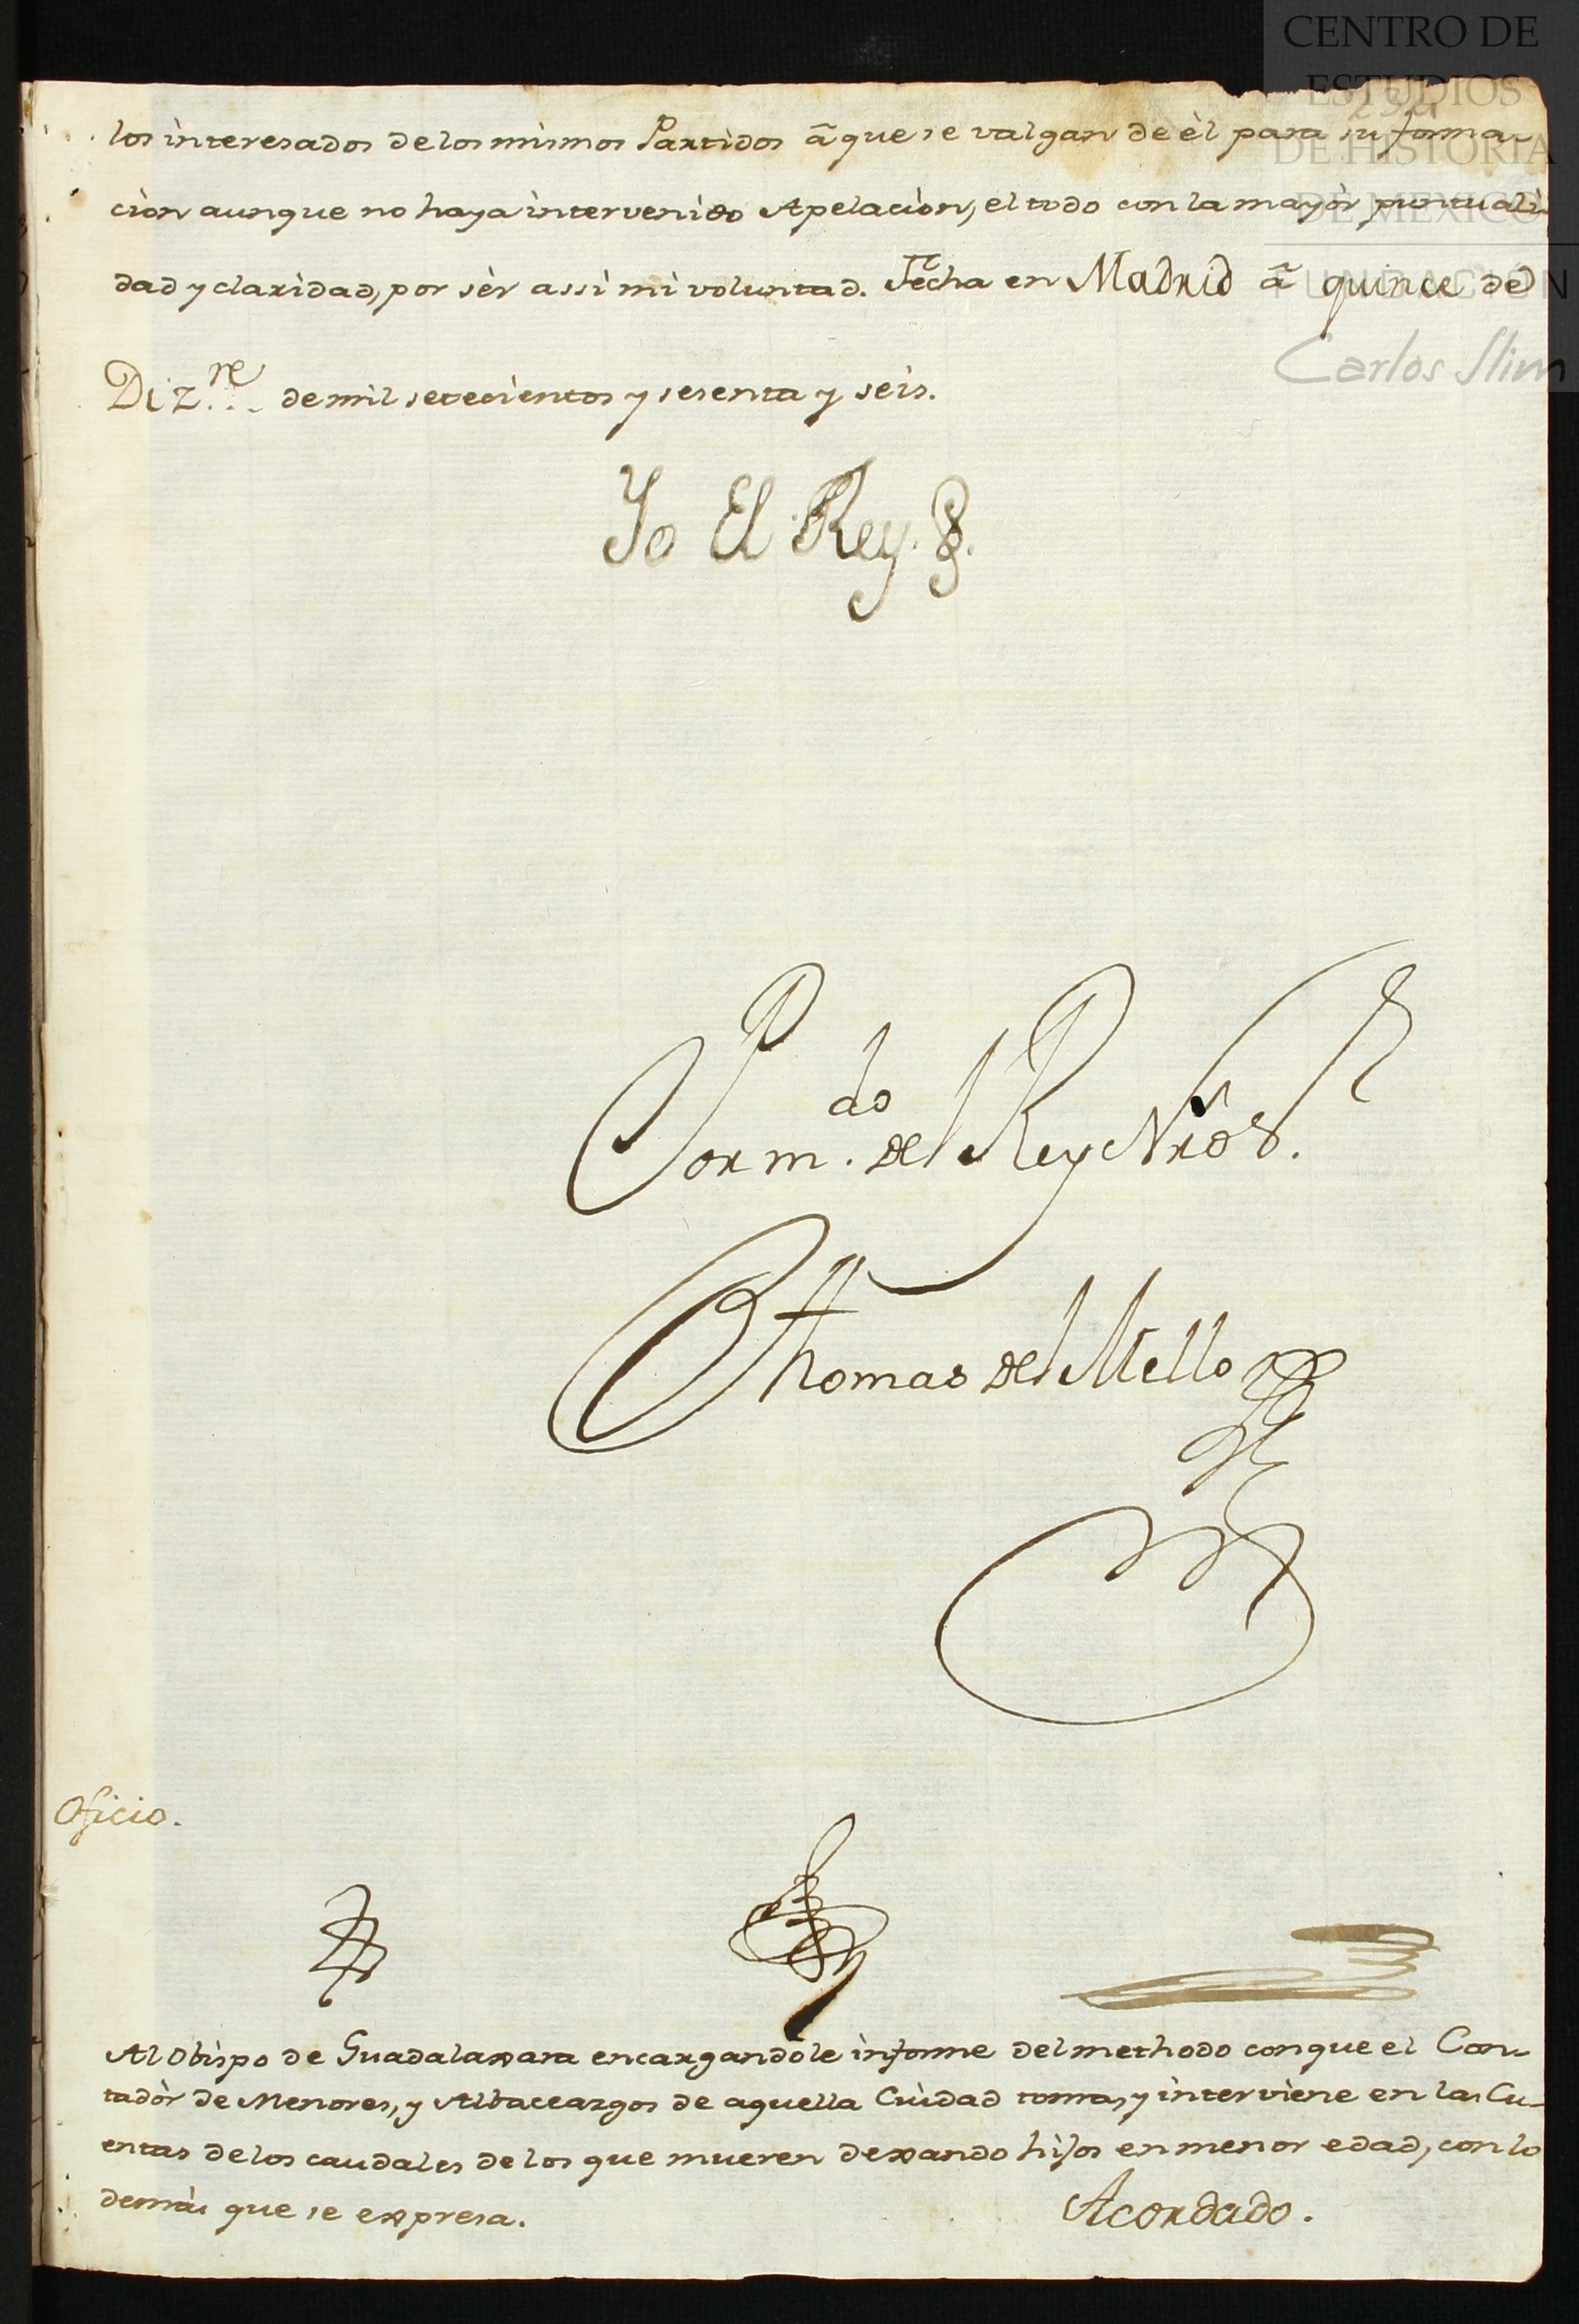 CENTRO DE
ESTUDIOS
DE HISTORIA
DE MEXICO
FUNDACIÓN
Carlos Slim
los interesados de los mismos Partidos â que se valgan de èl para su forma-
cion aunque no haya intervenido Apelacion, el todo con la mayòr puntuali-
dad y claridad, por sèr assi mi voluntad. Fecha en Madrid â quince de
Diz.re de mil setecientos y sesenta y seis.
Yo El Rey.
Por m.do del Rey Nro S.r
Thomas del Mello
Oficio.
Al Obispo de Guadalaxara encargandole informe del methodo con que el Con-
tadòr de Menores, y Albaceazgos de aquella Ciudad toma, y interviene en las Cu-
entas de los caudales de los que mueren dexando hijos en menor edad, con lo
demàs que se expresa.
Acordado.